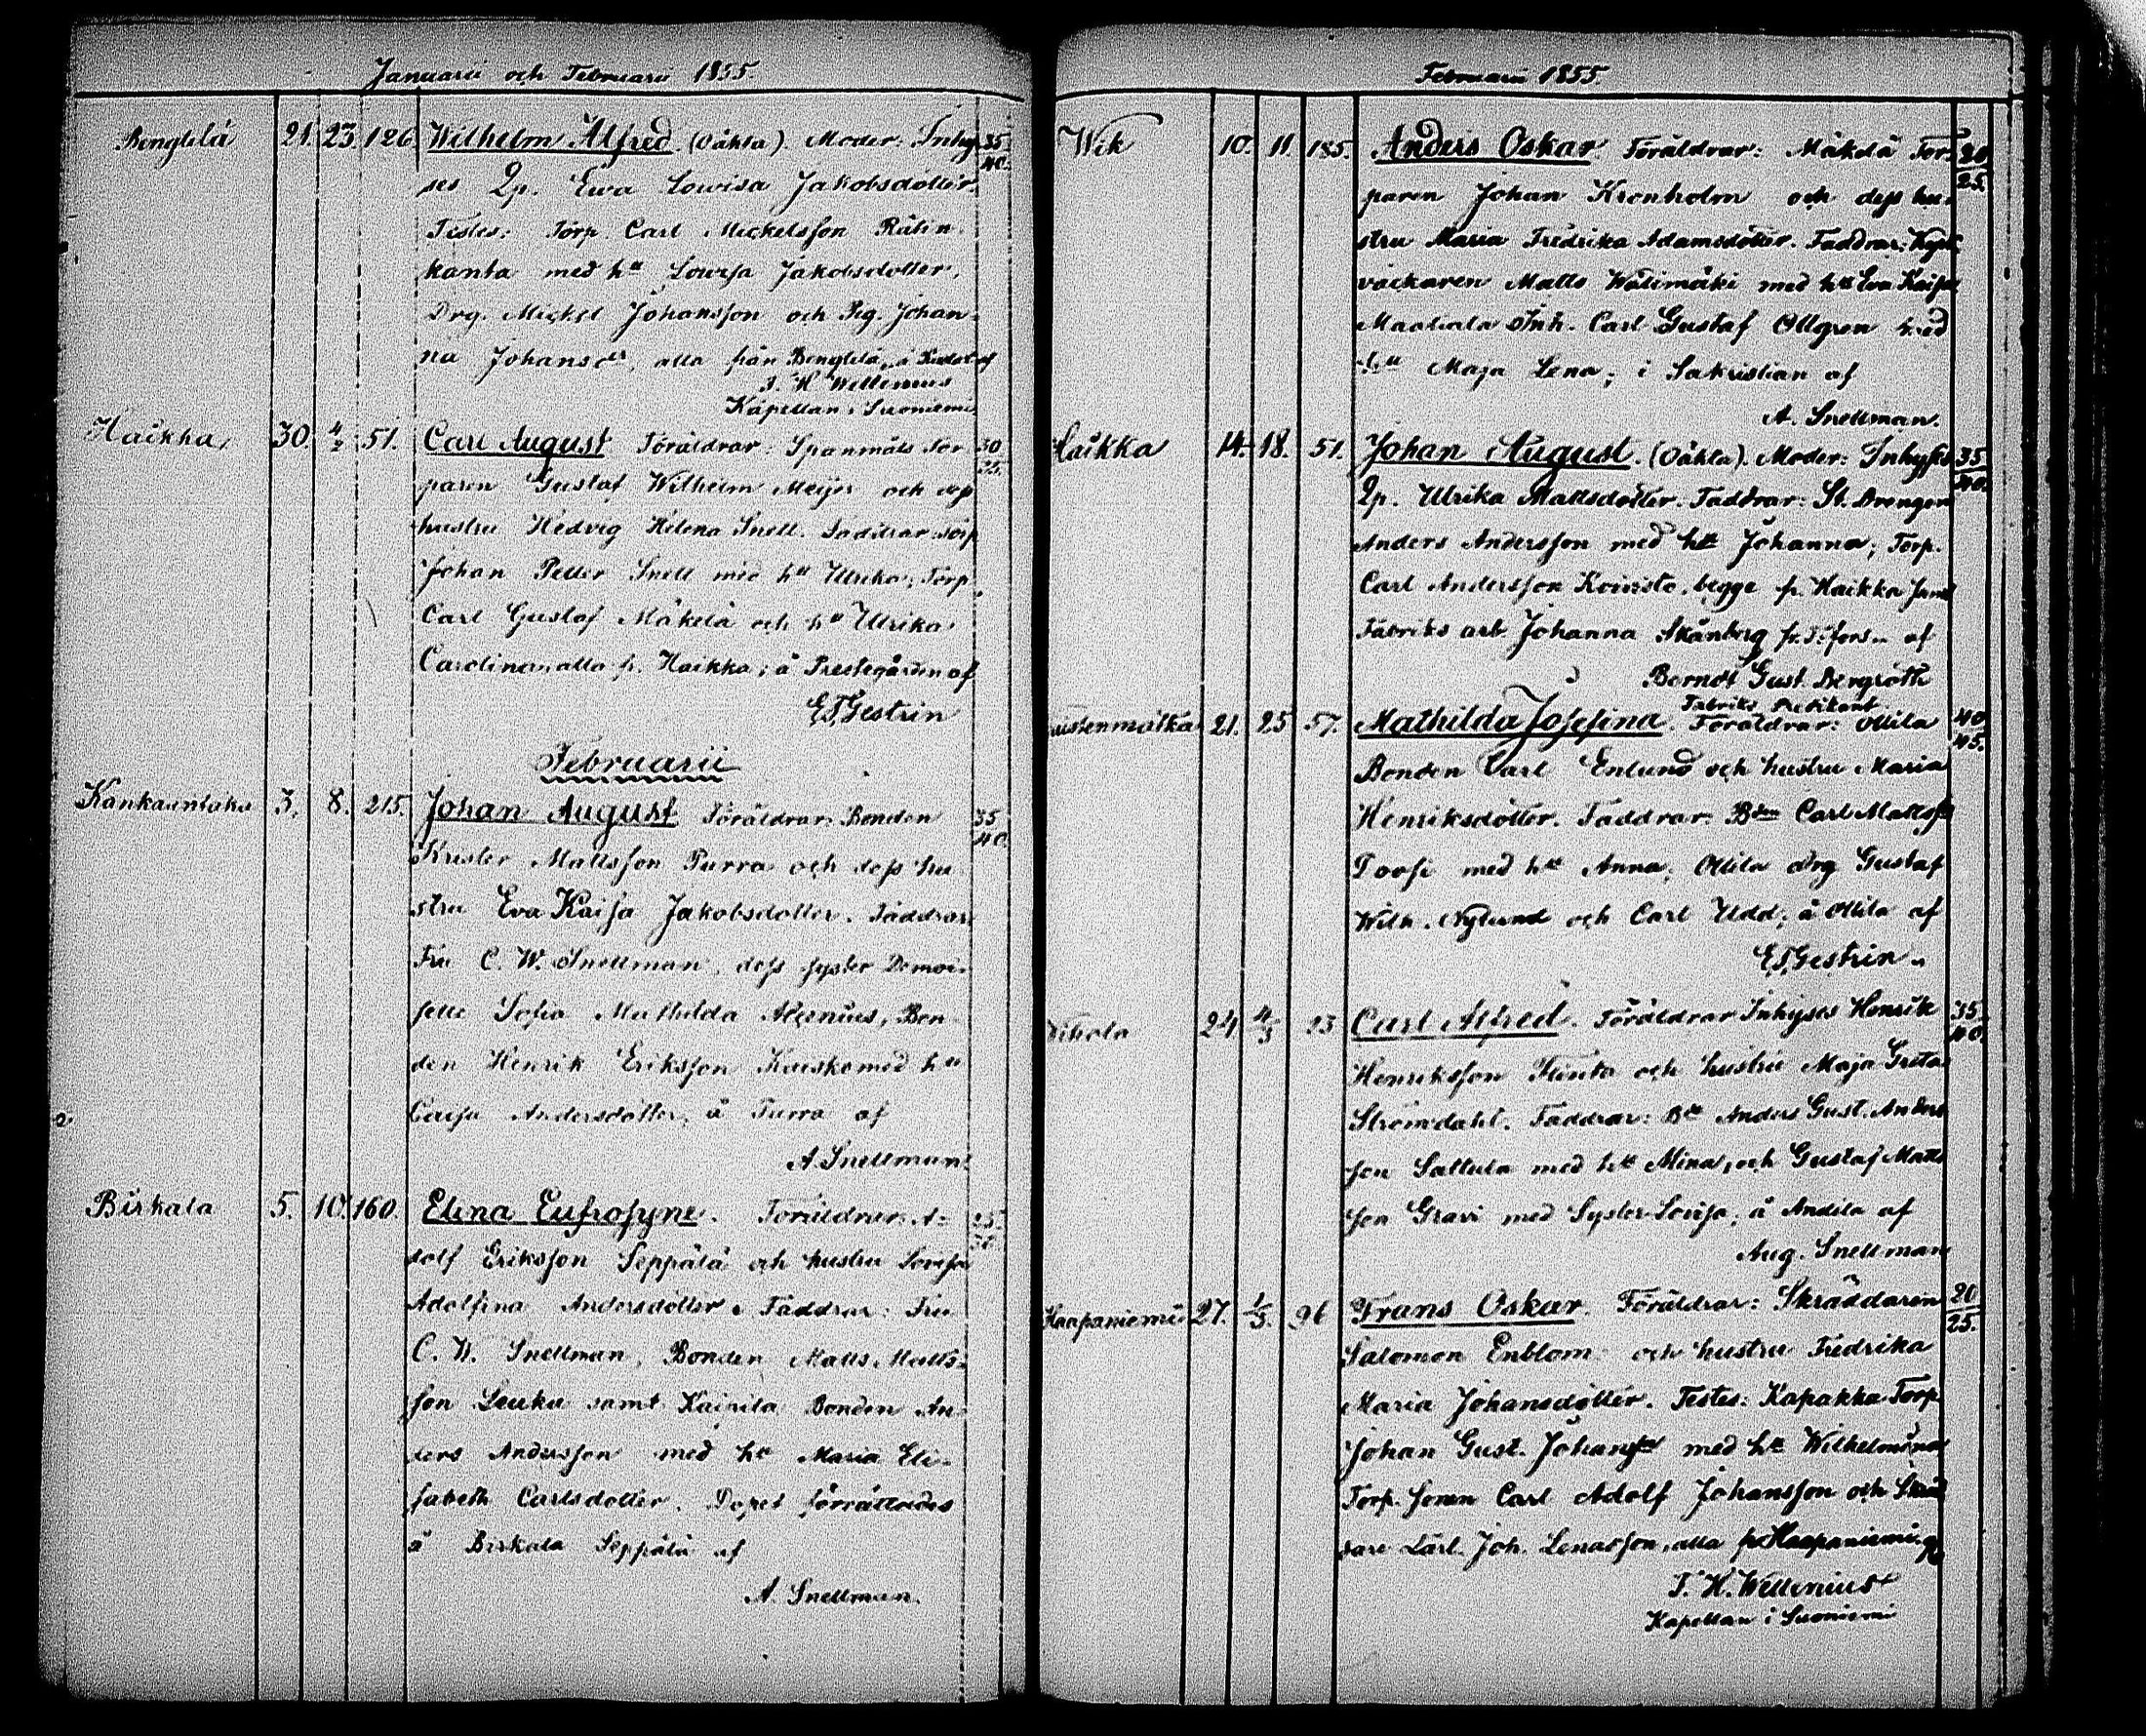 Januarii och Februarii 1855.
Benglelä 21. 23. 126. Wilhelm Alfred. (Oäkta). Moder: Inhy- 35/40.
ses Qp. Ewa Lowisa Jakobsdotter.
Testes: Torp. Carl Mickelsson
kanta med hu Lowisa Jakobsdotter,
Drg. Mickel Johansson och Pig. Johan-
na Johansdr, alla från Benglelä, å af
Wellenius
Kapellan i Suoniemi
Haikka, 30. 4/2 51. Carl August Föräldrar: Spanmåls Tor- 30/35.
paren Gustaf Wilhelm Meijer och dess
hustru Hedvig Helena Snell. Faddrar: Torp
Johan Petter Snell med hu Ulrika; Torp.
Carl Gustaf Mäkelä och hu Ulrika
Carolina, alla fr. Haikka; å Prestegården af
E.T.Gestrin
Februarii
Kankaantaka 3. 8. 215. Johan August Föräldrar: Bonden 35/40.
Krister Mattsson Purra och dess hu-
stru Eva Kaisa Jakobsdotter. Faddrar:
Fru C. W. Snellman, dess syster Demoi-
selle Sofia Mathilda Alcenius, Bon-
den Henrik Eriksson med hu
Caisa Andersdotter; å Purra af
A. Snellman.
Birkala 5. 10. 160. Elina Eufrosyne. Föräldrar: A-
dolf Eriksson Seppälä och hustru Lovisa
Adolfina Andersdotter. Faddrar: Fru
C. W. Snellman, Bonden Matts Matts-
son Leuku samt Kairila Bonden An-
ders Andersson med hu Maria Eli-
sabeth Carlsdotter. Dopet förrättades
å Birkala Seppälä af
A. Snellman.
Februarii 1855.
Wik 10. 11. 185. Anders Oskar. Föräldrar: Mäkelä Tor- 20/25.
paren Johan Kronholm och dess hu-
stru Maria Fredrika Adamsdotter. Faddrar:
Matts Wälimäki med hu Eva Kaisa
Inh. Carl Gustaf Ollgren med
hu Maja Lena; i Sakristian af
A. Snellman.
Haikka 14. 18. 51. Johan August. (Oäkta). Moder: Inhyses 35/40.
Qp. Ulrika Mattsdotter. Faddrar: St. Drengen
Anders Andersson med hu Johanna; Torp.
Carl Andersson Koivisto, begge fr. Haikka samt
Fabriks arb. Johanna Skånberg fr. T:fors. af
Berndt Gust. Bergroth
Fabriks Predikant
21. 25 57. Mathilda Josefina. Föräldrar: Ollila 40/45.
Bonden Carl Enlund och hustru Maria
Henriksdotter. Faddrar: Bdn Carl Mattss
med hu Anna; Ollila drg Gustaf
Wilh. Nylund och Carl Udd; å Ollila af
E.T.Gestrin.
24. 4/3 23 Carl Alfred. Föräldrar Inhyses Henrik 35/40.
Henriksson och hustru Maja Greta
Strömdahl. Faddrar: Bd Anders Gust. Anders-
son Sattula med hu Mina, och Gustaf Matts
son med Syster Lovisa; å Andila af
Aug. Snellman
Haapaniemi 27. 1/3. 96 Frans Oskar. Föräldrar: Skräddaren 20/25.
Salomon Enblom och hustru Fredrika
Maria Johansdotter. Testes: Kapakka Torp
Johan Gust. Johanss med hu Wilhelmina
Torp. sonen Carl Adolf Johansson och Skräd
dare Lärl. Joh. Lenasson, alla fr. Haapaniemi af
Wellenius
Kapellan i Suoniemi